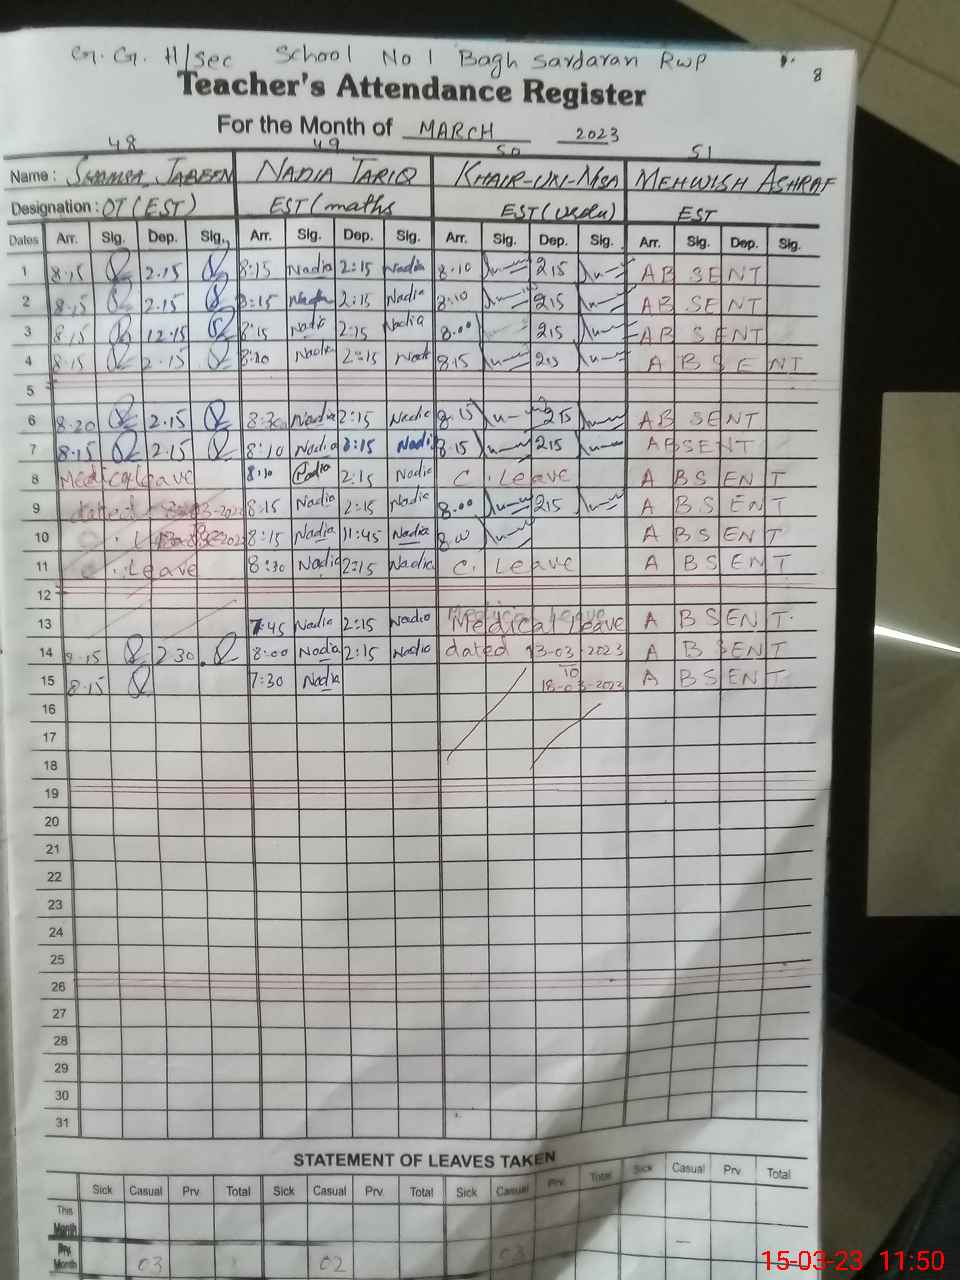 G. G. H/Sec School No 1 Bagh Sardaran RWP 8
Teacher's Attendance Register
For the Month of MARCH 2023
48 49 50 51
Name : SHAMSA JABEEN NADIA TARIQ KHAIR-UN-NISA MEHWISH ASHRAF
Designation : OT (EST) EST (maths EST (urdu) EST
Dates Arr. Sig. Dep. Sig. Arr. Sig. Dep. Sig. Arr. Sig. Dep. Sig. Arr. Sig. Dep. Sig.
1 8.15 2.15 8:15 Nadia 2:15 Nadia 8.10 2.15 ABSENT
2 8.15 2.15 8:15 Nadia 2:15 Nadia 8:10 2.15 ABSENT
3 8.15 12.15 8:15 Nadia 2:15 Nadia 8.00 2.15 ABSENT
4 8.15 2.15 8:20 Nadia 2:15 8.15 2.15 ABSENT
5
6 8.20 2.15 8:30 Nadia 2:15 Nadia 8.15 2.15 ABSENT
7 8.15 2.15 8:10 Nadia 2:15 Nadi 8.15 2.15 ABSENT
8 Medical leave 8:10 Nadia 2:15 Nadia C. Leave ABSENT
9 dated 8:15 Nadia 2:15 Nadia 8.00 2.15 ABSENT
10 8:15 Nadia 11:45 Nadia 8.00 ABSENT
11 C. Leave 8:30 Nadia 2:15 Nadia C. Leave ABSENT
12
13 7:45 Nadia 2:15 Nadia Medical leave ABSENT.
14 8.15 2.30 8:00 Nadia 2:15 Nadia dated 13-03-2023 ABSENT
15 8.15 7:30 Nadia TO 18-03-2023 ABSENT
16
17
18
19
20
21
22
23
24
25
26
27
28
29
30
31
STATEMENT OF LEAVES TAKEN
Sick Casual Prv Total Sick Casual Prv. Total Sick Casual Prv. Total Sick Casual Prv. Total
This Month
Prv. Month 03 02 03 —
15-03-23 11:50